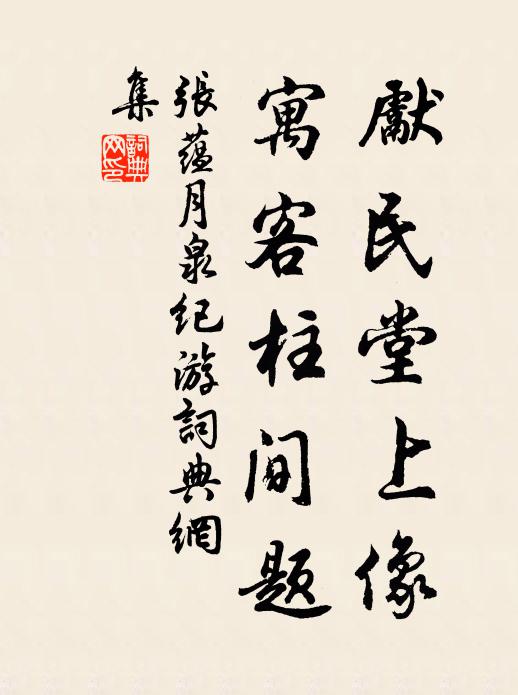 獻民堂上像
寓客柱间题
張蕴月泉纪游詞典網
集
詞典网印